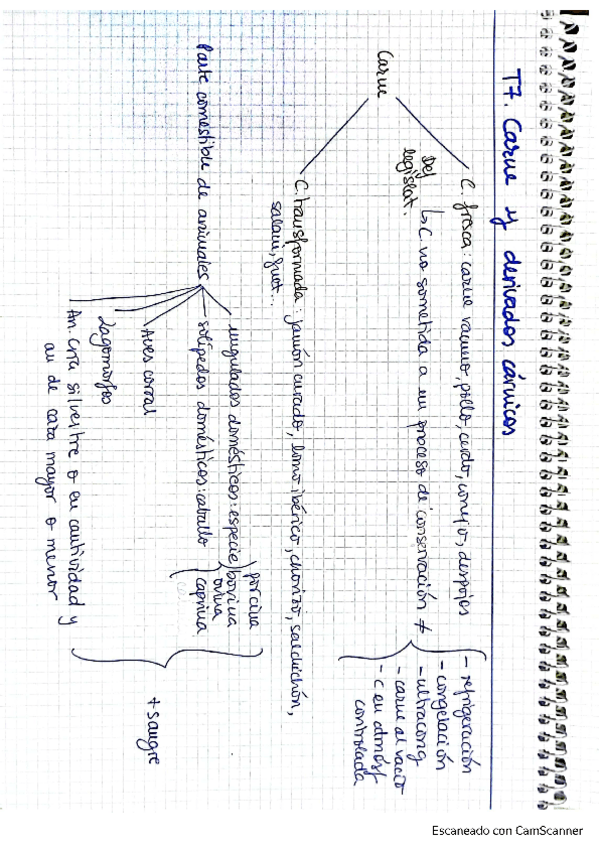 T7. Carne y derivados cárnicos
Carne
C. fresca: carne vacuno, pollo, cerdo, conejo, despojos
Def legislat.
↳ C no sometida a un proceso de conservación ≠
- refrigeración
- congelación
- ultracong
- carne al vacío
- C en atmósf
controlada
C. transformada: jamón curado, lomo ibérico, chorizo, salchichón,
salami, fuet...
Parte comestible de animales
ungulados domésticos: especie
porcina
bovina
ovina
caprina
solípedos domésticos: caballo
Aves corral
Lagomorfos
An. cría silvestre o en cautividad y
an de caza mayor o menor
+ sangre
Escaneado con CamScanner